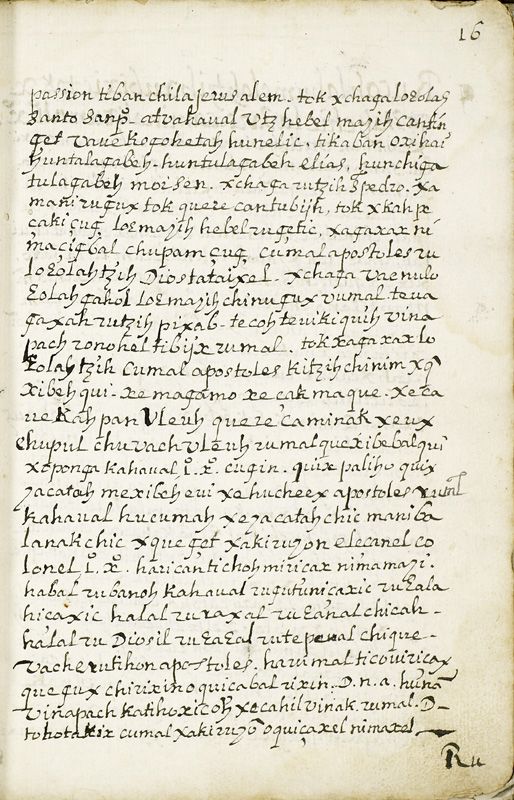 16
passion tiban chila jerusalem. tok xchaga loꜫolah
Santo Sanp̃. atvahaval vtz hebel mazih cantin
get vave Kogohetah hunelic. tikaban oxihai
huntalagabeh. huntulagabeh elias, hunchiga
tulagabeh moisen. xchaga rutzih S pedro. xa
mani rugux tok quere cantubijh, tok xkah pe
caki çug, loꜫmazih hebel rugetic, xagaxax ni
ma cigbal chupam çug, cumal apostoles ru
loꜫolah tzih Dios tataixel. xchaga vaenulo
ꜫolah gahol loꜫmazih chinugux vumal. teva
gaxah rutzih pixab. tecoh teviki quih vina
pach ronohel tibijx rumal. tok xagaxax lo
ꜫolah tzih cumal apostoles kitzih chinim xq̃
xibeh qui. xe magamo xe cak maque. xeca
ve Kah pan Vleuh quere caminak xeux
chupul chuvach vleuh rumal quexibebal qui
xcponga kahaval i. x. cugin. quix palihu quix
yacatah mexibeh evi xe hucheex apostoles rumal
kahaval hucumah xeyacatah chic maniba
lanak chic xque get xaki ruyon elecanol co
lonel i. x. haricantichoh miricax nimamazi.
habal rubanoh kahaval rugutunicaxic ruꜫala
hicaxic halal ruraxal ruꜫanal chicah.
halal ru Diosil ruꜫaꜫal rutepeual chique.
vache rutihon apostoles. harumal ticovixicax
que gux chirixino quicabal rixin. D. n. a. hunã
vinapach katihoxicoh xecahil vinak. rumal. D.
tohotakix cumal xaki ruyõ o quiçaxel nimaxel
Ru